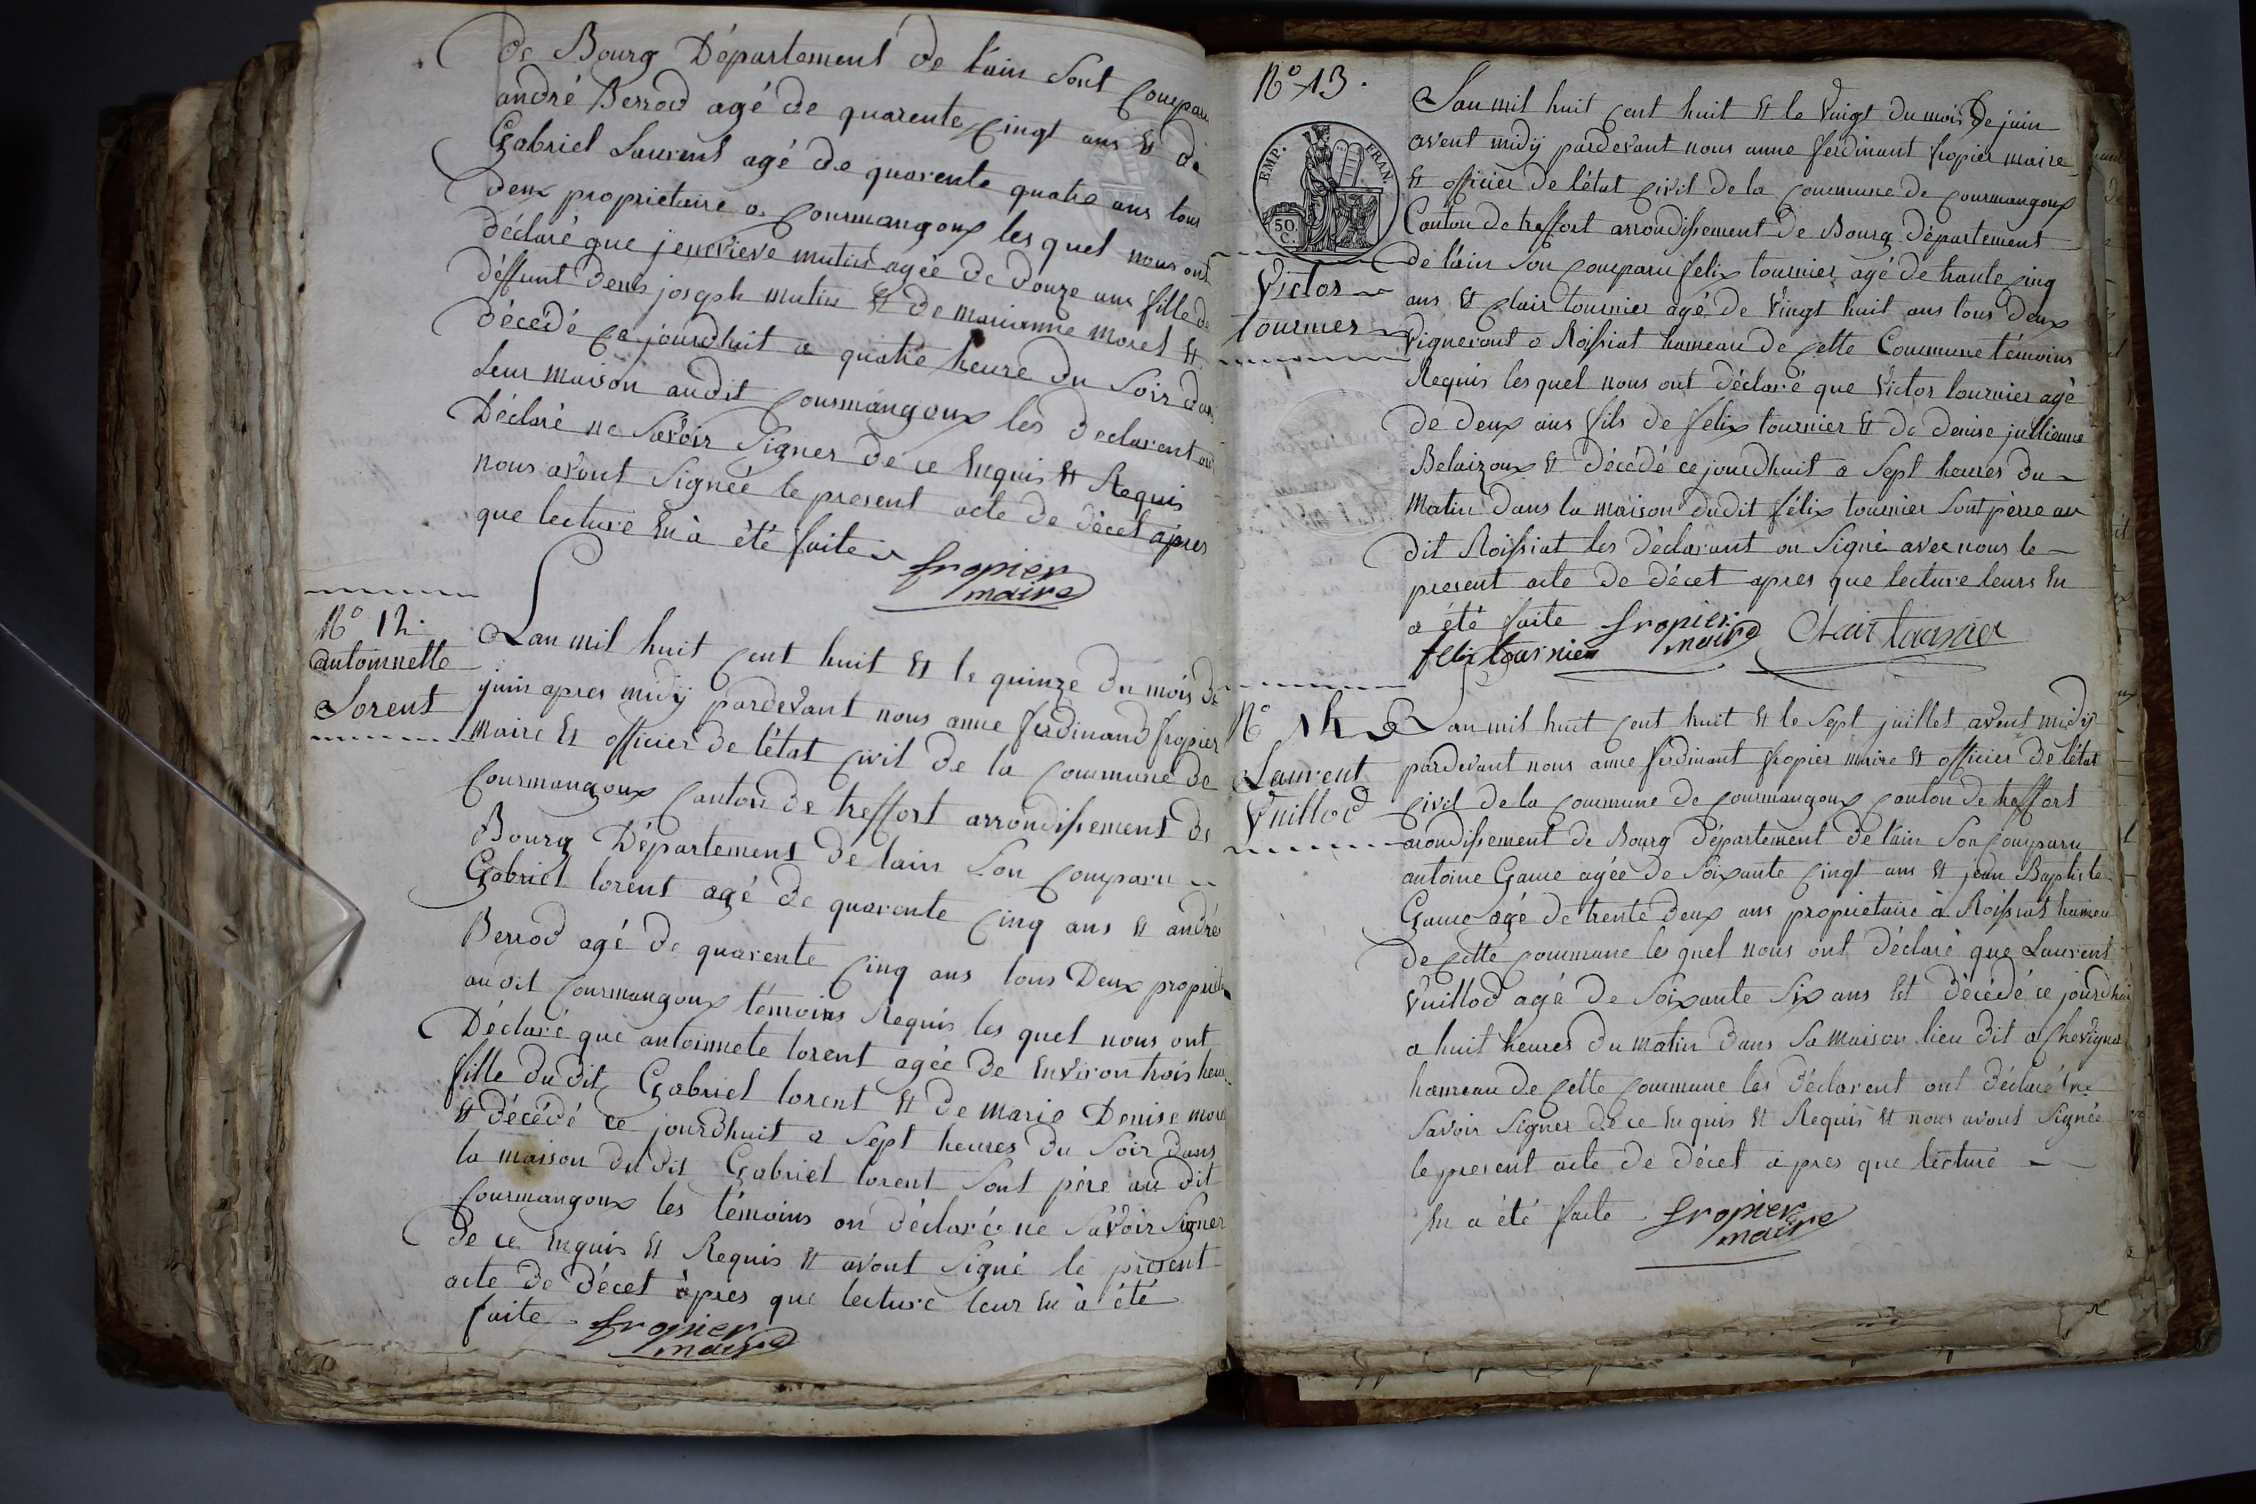 de Bourg Département de lain sont compar
andré Berrod agé de quarente cinqt ans Et de
Gabriel Laurent agé de quarente quatre ans tous
deux proprietaire a courmangoux les quel nous ont
déclaré que jenevieve mutin agée de douze ans fille de
déffunt denis joseph mutin Et de marianne morel Et
décédé ce jourdhuit a quatre heure du soir dans
leur maison audit courmangoux les declarent on
Déclaré ne savoir signer de ce Enquis Et Requis
nous avont signée le present acte de décet apres
que lecture En à été faite
fropier
maire
N° 12.
antoinnette
Lorent
Lan mil huit cent huit Et le quinze du mois de
juin apres midy pardevant nous anne ferdinand fropier
maire Et officier de létat civil de la commune de
courmangoux canton de treffort arrondissement de
Bourg Département de lain son comparu
Gabriel lorent agé de quarente cinq ans Et andré
Berrod agé de quarente cinq ans tous Deux propriet
au dit courmangoux témoins Requis les quel nous ont
Déclaré que antoinnete lorent agée de Environ trois heu
fille du dit Gabriel lorent Et de marie Denise mor
Et décédé ce jourdhuit a sept heures du soir dans
la maison du dit Gabriel lorent sont père au dit
courmangoux les témoins on déclaré ne savoir signer
de ce Enquis Et Requis Et avont signé le present
acte de décet àpres que lecture leur En à été
faite
fropier
maire
N° 13.
EMP. FRAN.
50.
C.
Victor
tournier
Lan mil huit cent huit Et le vingt du mois de juin
avent midy pardevant nous anne ferdinant fropier maire
Et officier de létat civil de la commune de courmangoux
Canton de treffort arrondissement de Bourg département
de lain son comparu félix tournier agé de trante cinq
ans Et clair tournier agé de vingt huit ans tous deux
vigneront a Roissiat hameau de cette Commune témoins
Requis les quel nous ont déclaré que victor tournier agé
de deux ans fils de félix tournier Et de denise jullienne
Belaizoux Et décédé ce jourdhuit a sept heures du
matin dans la maison dudit félix tournier sont père au
dit Roissiat les déclarant on signé avec nous le
present acte de décet apres que lecture leurs En
a été faite
fropier
maire
Clair tournier
felix tournier
N° 14
Laurent
Vuillod
Lan mil huit cent huit Et le sept juillet avent midy
pardevant nous anne ferdinant fropier maire Et officier de létat
civil de la commune de courmangoux canton de treffort
arondissement de Bourg département de lain son comparu
antoine Game agée de soixante cinqt ans Et jean Baptiste
Game agé de trente deux ans proprietaire à Roissiat hameau
de cette commune les quel nous ont déclaré que Laurent
Vuillod agé de soixante six ans Et décédé ce jourdhui
a huit heures du matin dans sa maison lieu dit a Chevigna
hameau de cette commune les déclarent ont déclaré ne
savoir signer de ce Enquis Et Requis Et nous avons signée
le present acte de décet a pres que lecture
En a été faite
fropier
maire